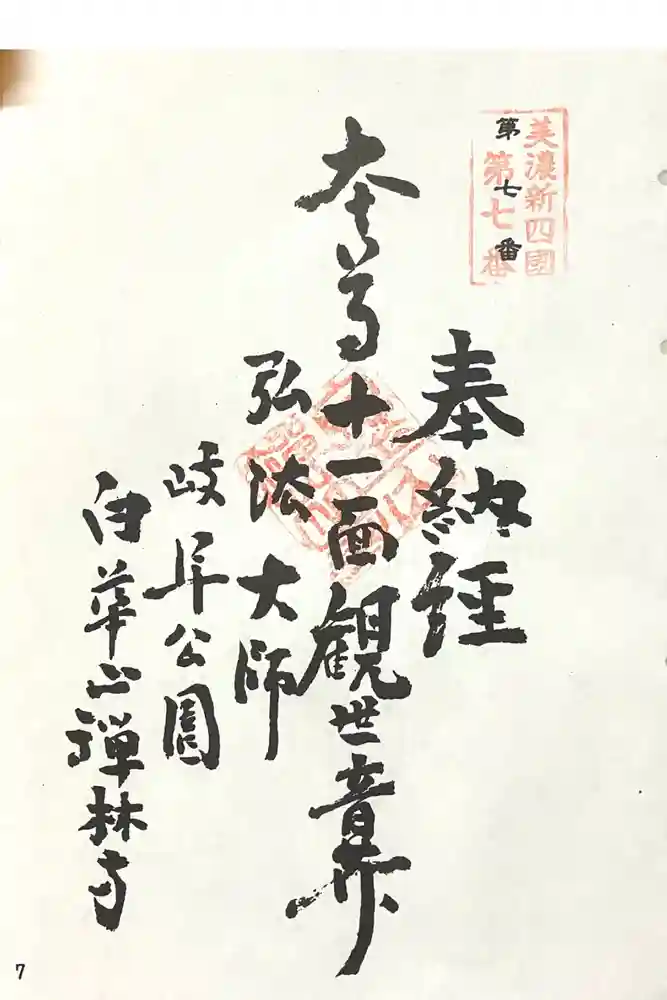 美濃新四國
第七七番
第七番
奉納経
本尊十一面観世音菩薩
弘法大師
岐阜公園
白華山禅林寺
7